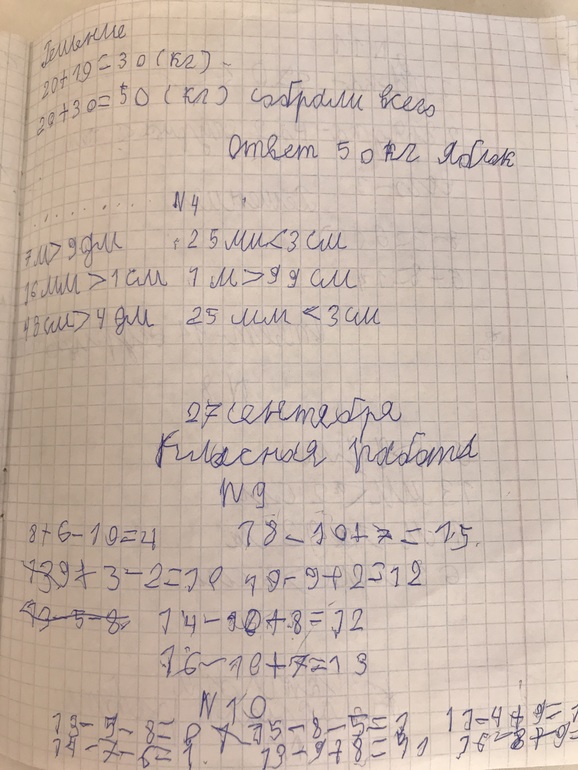 Решение
20+10=30 (кг)
20+30=50 (кг) собрали всего
Ответ 50 кг яблок
N4
7м>9дм 25мм<3см
16мм>1см 1м>99см
48см>4дм 25мм<3см
27 сентября
Класная работа
N9
8+6-10=4 18-10+7=15
9+3-2=10 19-9+2=12
13-5-8 14-10+8=12
16-10+7=13
N10
13-5-8=0 15-8-5= 11-4+9=
14-7-6=1 13-9+8= 16-8+9=